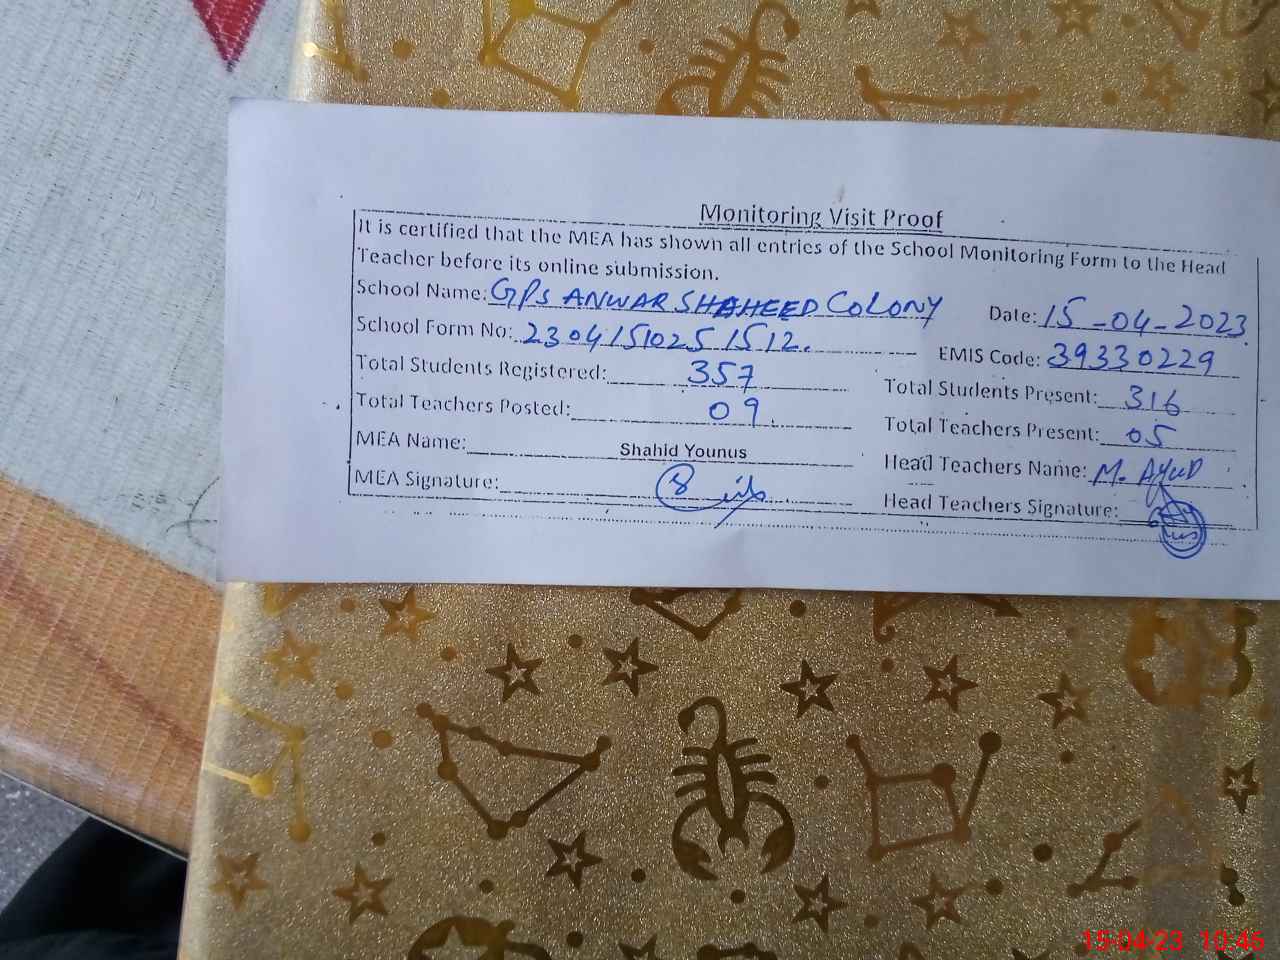 Monitoring Visit Proof
It is certified that the MEA has shown all entries of the School Monitoring Form to the Head
Teacher before its online submission.
School Name: GPS ANWAR SHAHEED COLONY Date: 15-04-2023
School Form No: 2304151025 1512. EMIS Code: 39330229
Total Students Registered: 357 Total Students Present: 316
Total Teachers Posted: 09 Total Teachers Present: 05
MEA Name: Shahid Younus Head Teachers Name: M. AYUB
MEA Signature: Head Teachers Signature:
15-04-23 10:46